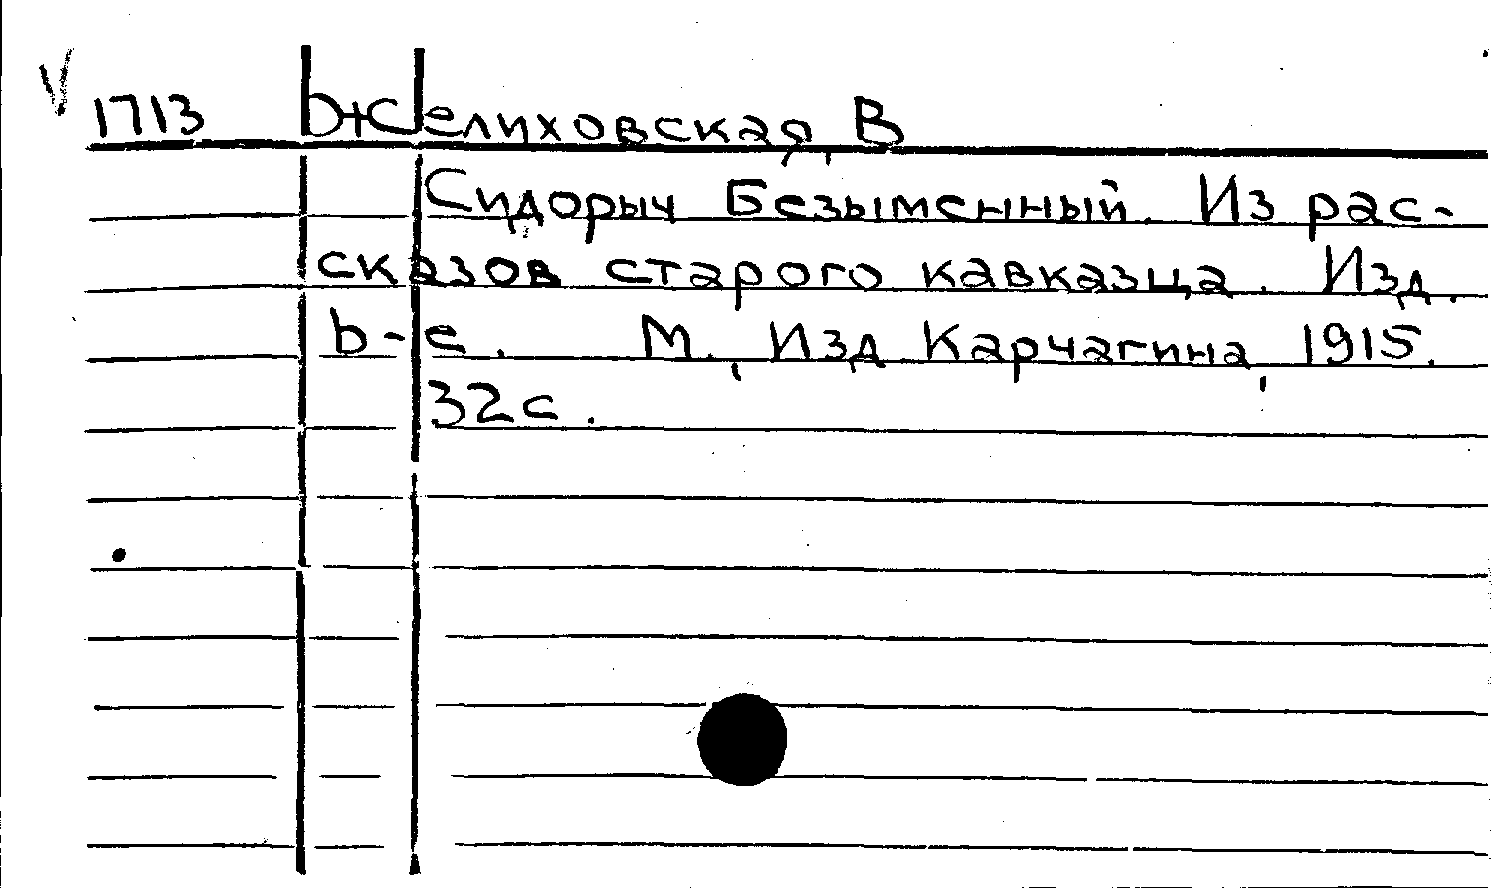 1713 Желиховская, В
Сидорыч Безыменный. Из рас-
сказов старого кавказца. Изд.
6-е. М., Изд Карчагина, 1915.
32с.